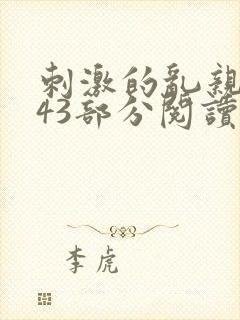 刺激的乱親
43部分閱讀
李虎